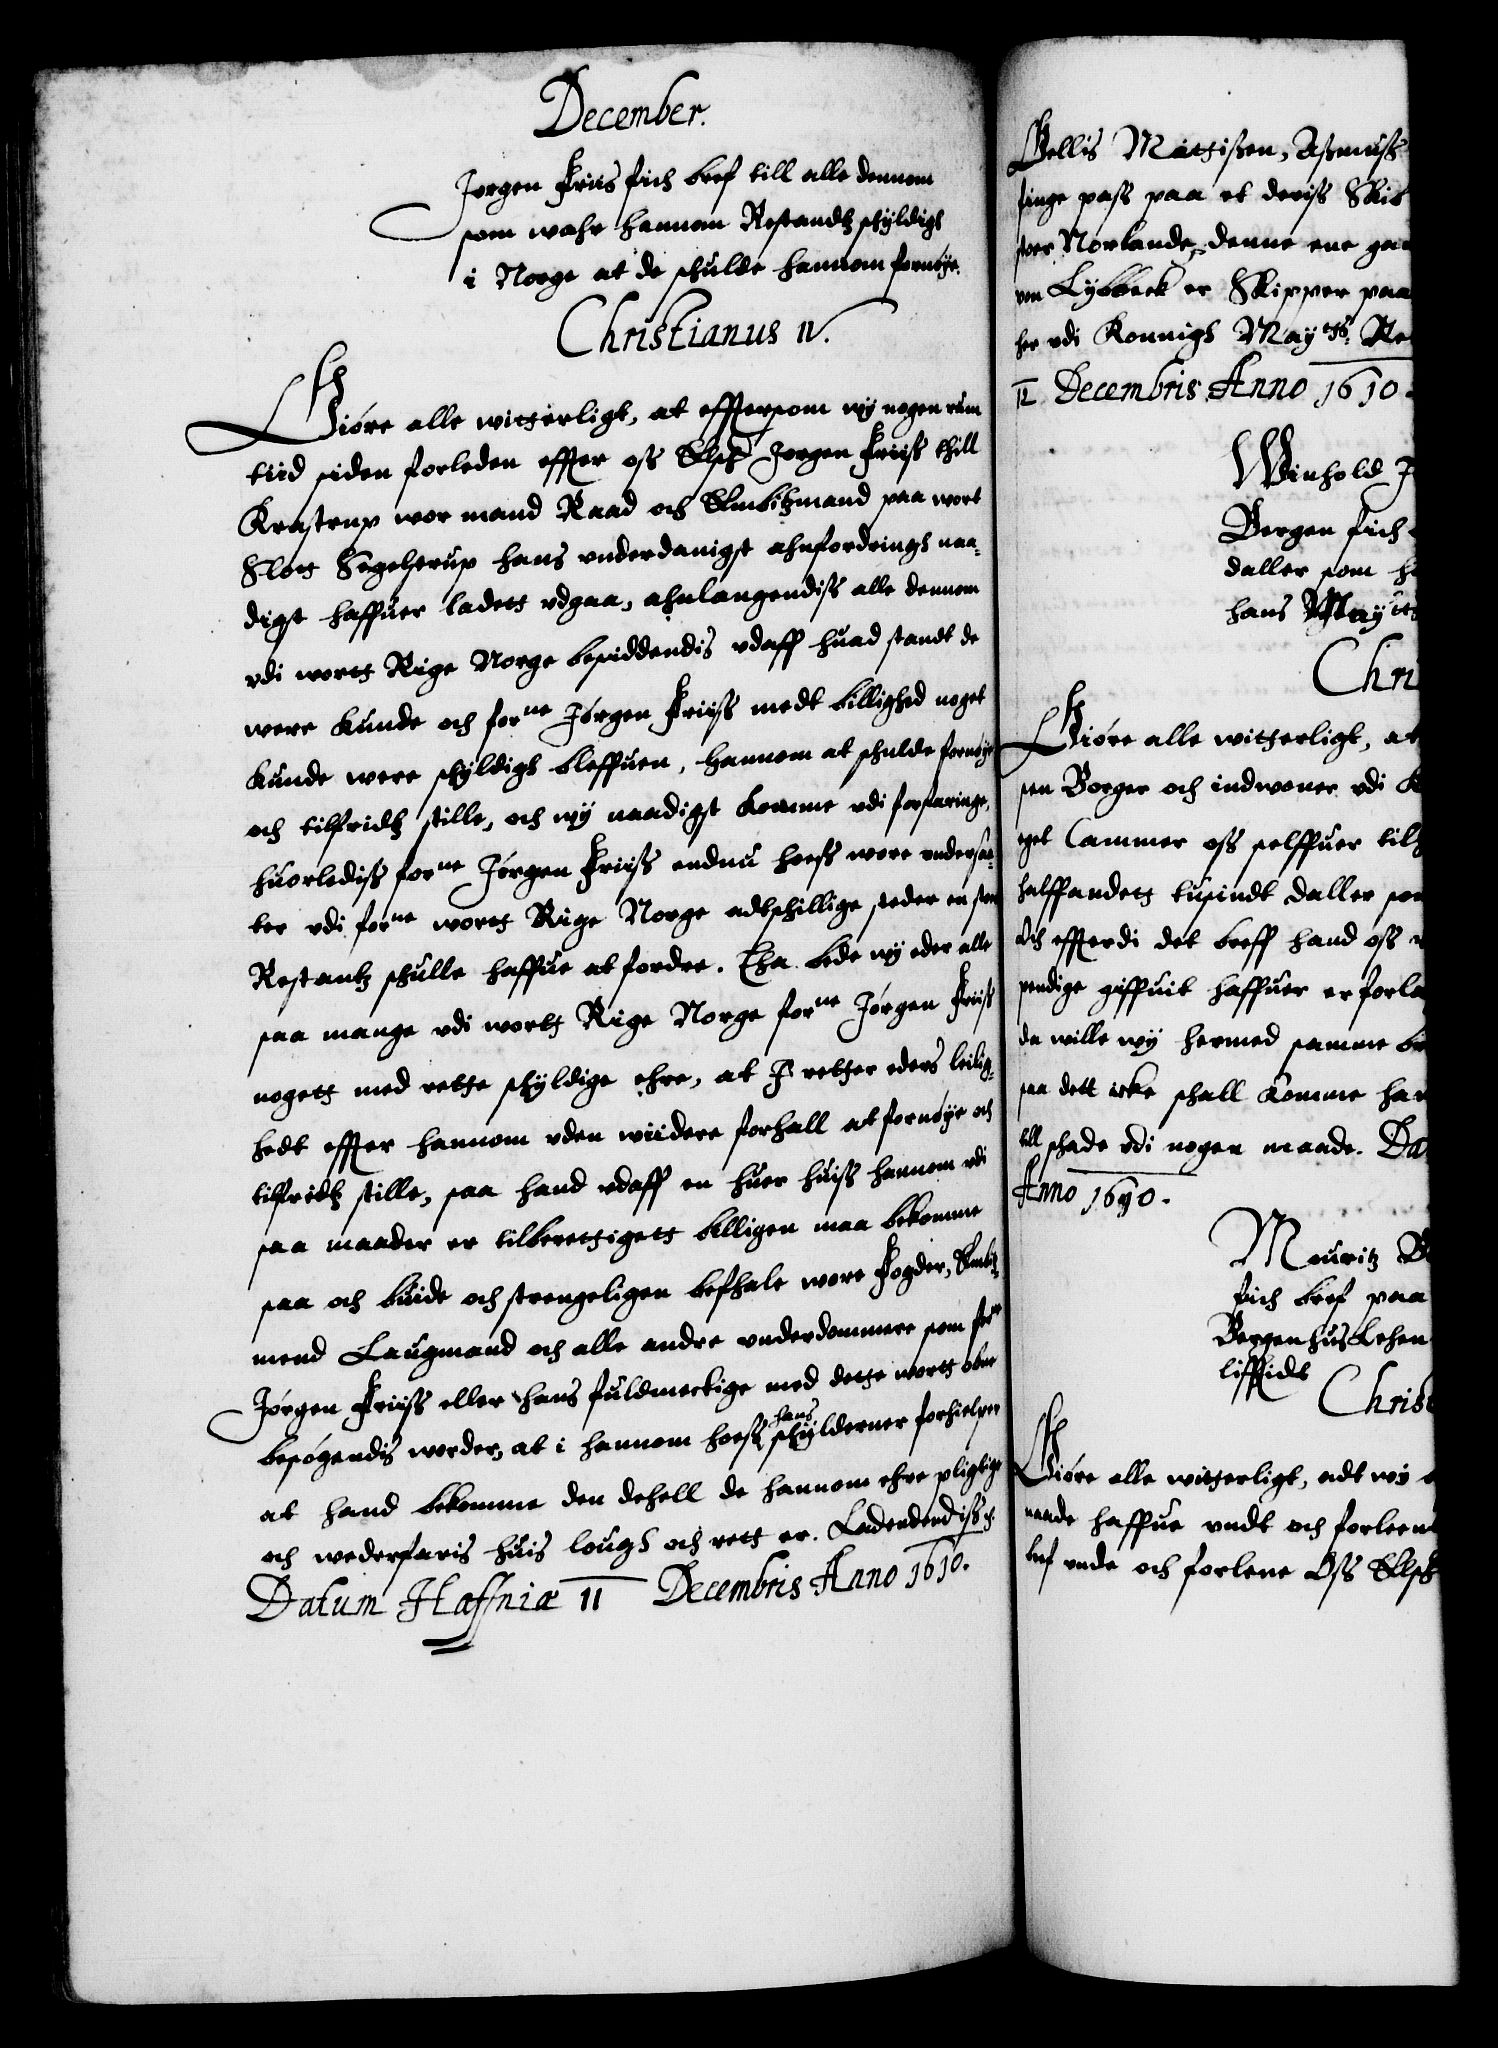 December.
Jørgen Friis fich bref till alle dennom
som wahr hannom Restandtz schyldigh
i Norge at de schulde hannom fornøye.
Christianus IV.
Giøre alle witterligt, at effttersom wy nogen rum
tiid siden forleden effter oss Elsch Jørgen Friiss thill
Krastrup wor mand Raad och Embitzmand paa wort
Slott Segelstrup hans vnderdanigst ahnfordringh naa-
digst haffuer ladett vdgaa, ahnlangendiss alle dennom
vdi wortt Rige Norge besiddendis vdaff huad standt de
were kunde och forne Jørgen Friiss medt billighed noget
kunde were schyldigh bleffuen, hannom at schulde fornøye
och tilfridtz stille, och wy naadigst komme vdi forfaringe,
huorlediss forne Jørgen Friiss endnu hoess wore vndersaa-
ter vdi forne wortt Rige Norge adtschillige steder en stor
Restantz schulle haffue at fordre. Tha bede wy eder alle
saa mange vdi wortt Rige Norge forne Jørgen Friiss
nogett med rette schyldige ehre, at I retter eders leilig-
hedt effter hannom vden widere forhall at fornøye och
tilfridtz stille, saa hand vdaff en huer huiss hannom vdi
saa maader er tilberettigett billigen maa bekomme
saa och biude och strengeligen befhale wore Fogder, Embitz-
mend Laugmand och alle andre vnderdommere som forne
Jørgen Friiss eller hans fuldmechtige med dette wortt obne
besøgendis worder, at i hannom hoess hans schylderner forhielper
at hand bekomme den dehell de hannom ehre pligtige
och wederfaris huis lough och rett er. Ladendendiss etc.
Datum Haffniæ 11 Decembris Anno 1610.
Gellis Mattissen, Assmuss
finge pass paa et deriss Skib
for Norlande, denne ene gan
von Lybbeck er Skipper paa
her vdi Konnigh Mayttz Re
12 Decembris Anno 1610.
Winhold J
Bergen fich
daller som h
hans Maytt
Chri
Giøre alle witterligt, at
sen Borger och indwoner vdi K
get Cammer oss selffuer til
halffandett tusindt daller som
Och effterdi det breff hand oss
pendige giffuit haffuer er forla
da wille wy hermed samme br
saa dett icke schall komme han
till schade vdi nogen maade. Da
Anno 1610.
Mouritz B
fich bref paa
Bergenhus Lehen
liffstidt
Christ
Giøre alle witterligt, adt wy
naade haffue vndt och forleent
bref vnde och forlene Oss Elsch